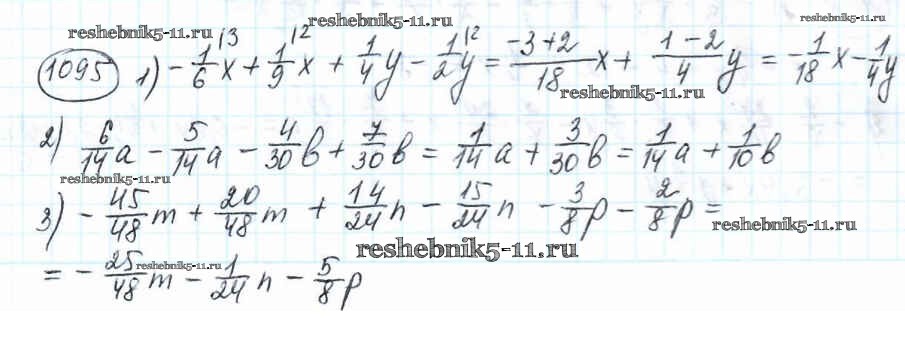 reshebnik5-11.ru reshebnik5-11.ru reshebnik5-11.ru
1095 1) -1/6^{\3}x + 1/9^{\2}x + 1/4y - 1/2^{\2}y = (-3+2)/18 x + (1-2)/4 y = -1/18x - 1/4y
reshebnik5-11.ru
2) 6/14a - 5/14a - 4/30b + 7/30b = 1/14a + 3/30b = 1/14a + 1/10b
reshebnik5-11.ru
3) -45/48m + 20/48m + 14/24n - 15/24n - 3/8p - 2/8p =
reshebnik5-11.ru
reshebnik5-11.ru
= -25/48m - 1/24n - 5/8p
reshebnik5-11.ru